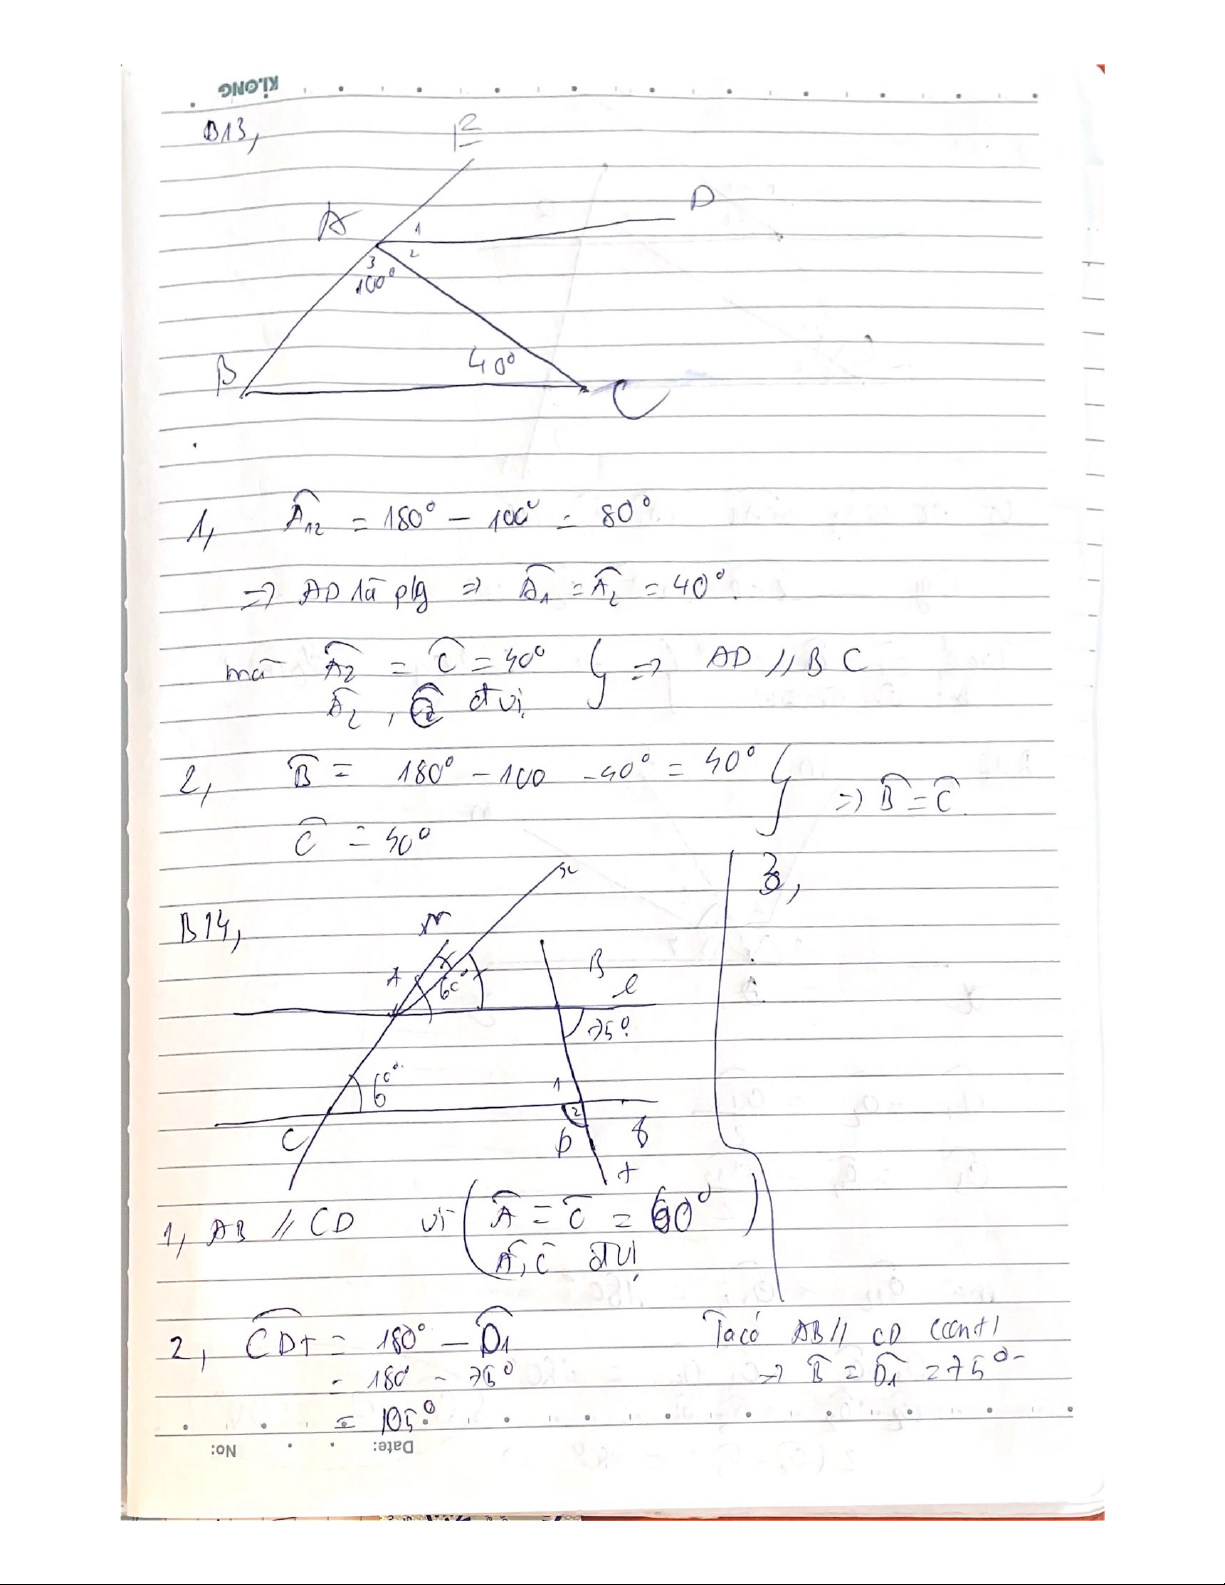 KLONG
B13,
E
A
D
1
2
3
100°
B
40°
C
1, Â₁₂ = 180° - 100° = 80°.
=> AD là p/g => Â₁ = Â₂ = 40°.
mà Â₂ = Ĉ = 40° } => AD // BC
Â₂, Ĉ đvị
2, B̂ = 180° - 100 - 40° = 40° } => B̂ = Ĉ.
Ĉ = 40°
3,
B14,
x
A
60°
B
75°
60°
1
2
C
D
t
1, AB // CD vì ( Â = Ĉ = 60° )
Â, Ĉ đvị
2, CDt = 180° - D̂₁
= 180 - 75°
= 105°
Ta có AB // CD (cmt)
=> B̂ = D̂₁ = 75°
No:
Date: